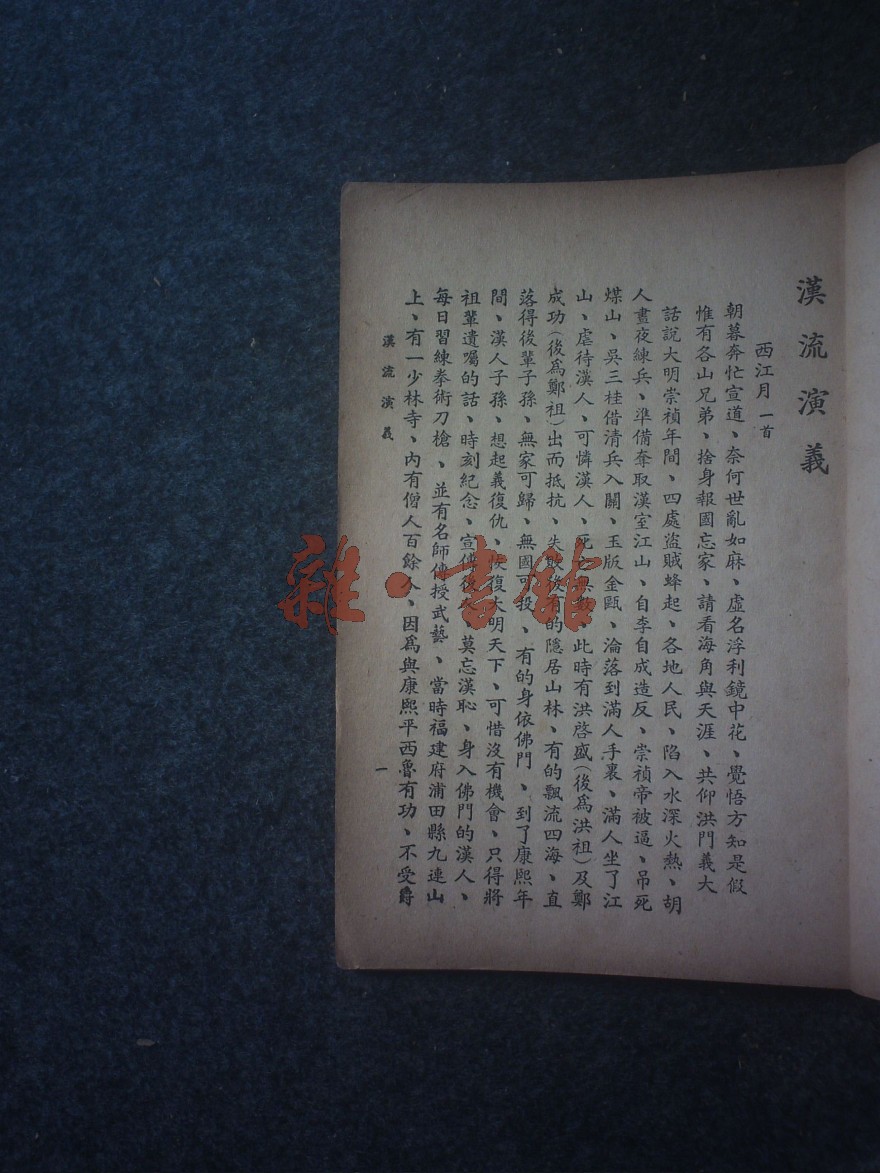 漢流演義
西江月 一首
朝暮奔忙宣道、奈何世亂如麻、虛名浮利鏡中花、覺悟方知是假
惟有各山兄弟、捨身報國忘家、請看海角與天涯、共仰洪門義大
話說大明崇禎年間、四處盜賊蜂起、各地人民、陷入水深火熱、胡
人晝夜練兵、準備奪取漢室江山、自李自成造反、崇禎帝被逼、吊死
煤山、吳三桂借清兵入關、玉版金甌、淪落到滿人手裏、滿人坐了江
山、虐待漢人、可憐漢人、死亡無數、此時有洪啓盛(後爲洪祖)及鄭
成功(後爲鄭祖)出而抵抗、失敗後有的隱居山林、有的飄流四海、直
落得後輩子孫、無家可歸、無國可投、有的身依佛門、到了康熙年
間、漢人子孫、想起義復仇、恢復大明天下、可惜沒有機會、只得將
祖輩遺囑的話、時刻紀念、宣傳後、莫忘漢恥、身入佛門的漢人、
每日習練拳術刀槍、並有名師傳授武藝、當時福建府浦田縣九連山
上、有一少林寺、內有僧人百餘人、因爲與康熙平西魯有功、不受爵
漢流演義
一
雜·書館